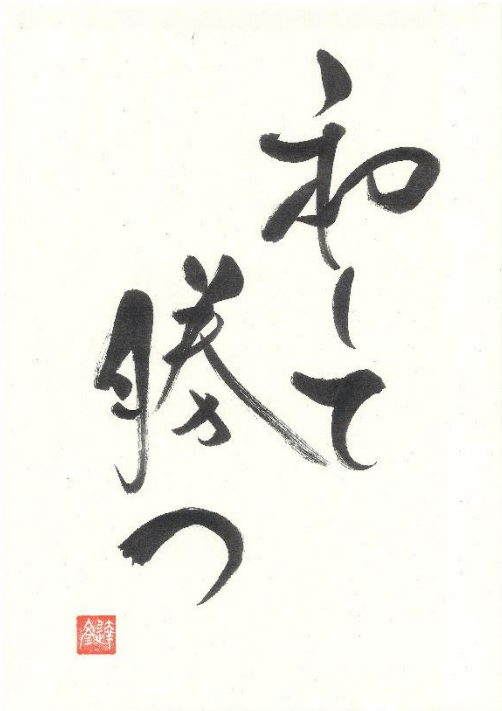 和して
勝つ